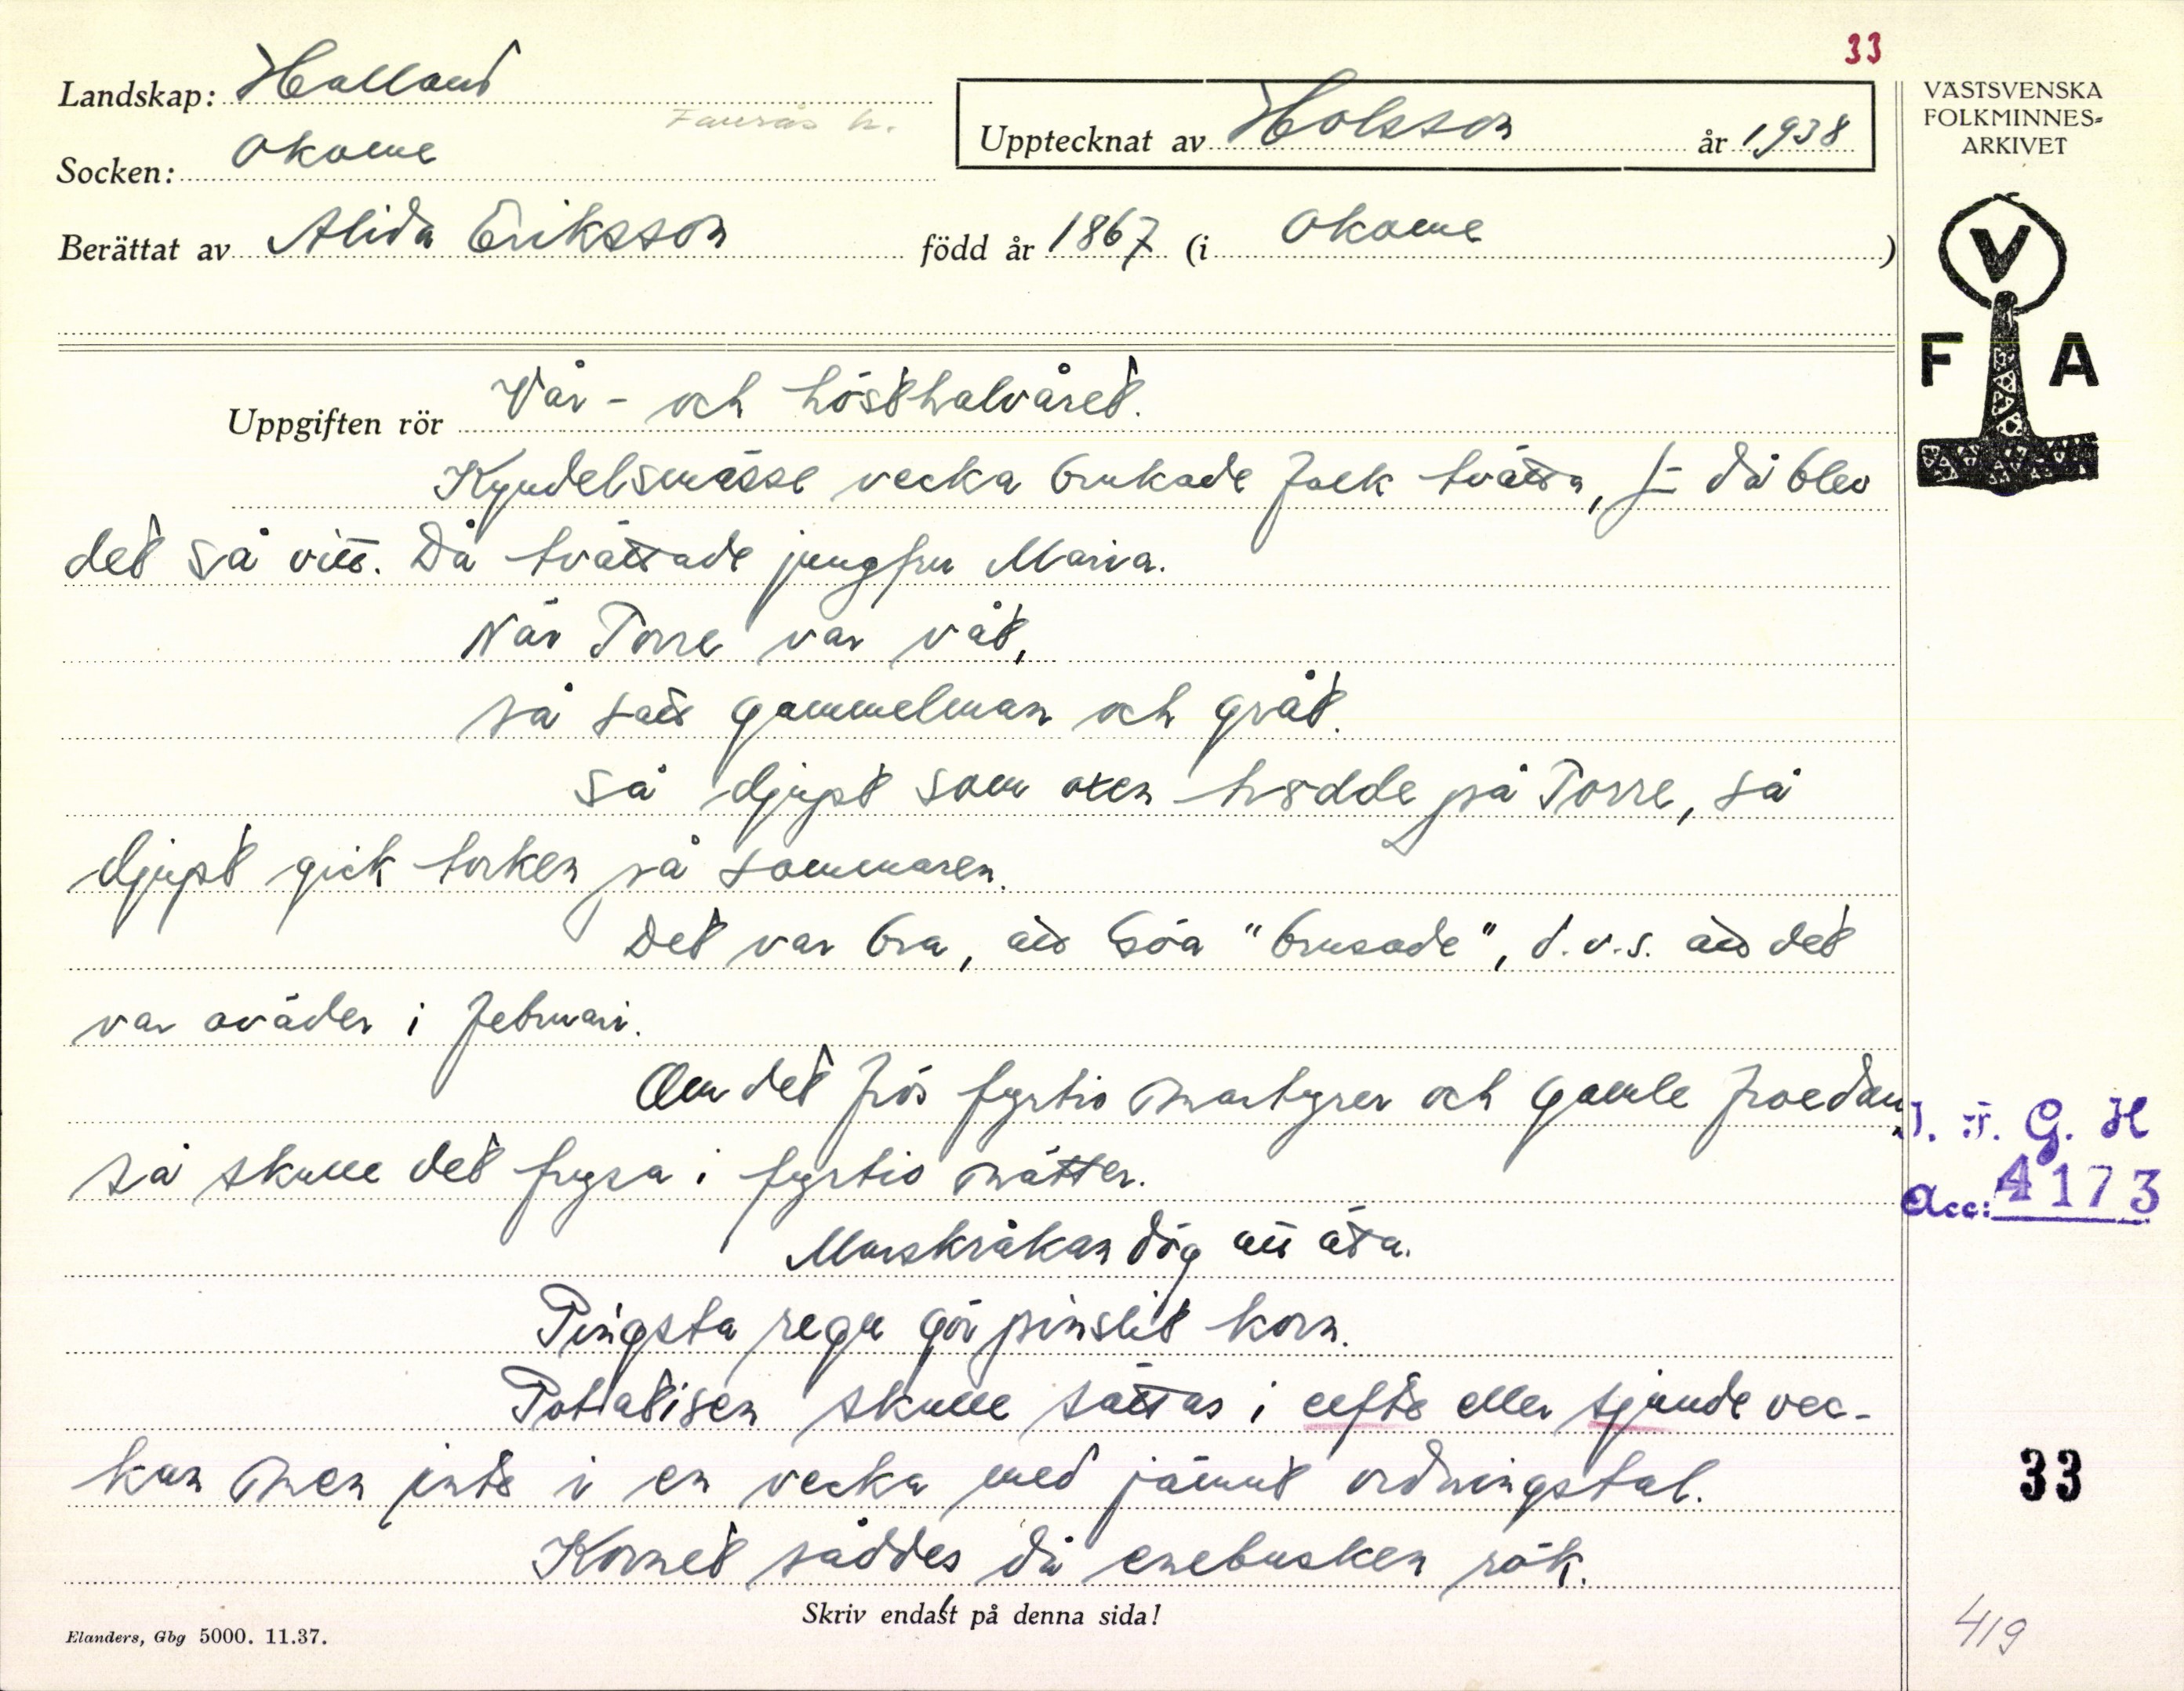 33
Landskap: Halland
Faurås h.
Upptecknat av Holsson år 1938
VÄSTSVENSKA
FOLKMINNES=
ARKIVET
Socken: Okome
Berättat av Alida Eriksson född år 1867 (i Okome )
V
F A
Uppgiften rör Vår- och hösthalvåret.
Kyndelsmässe vecka brukade folk tvätta, då blev
det så vitt. Då tvättade jungfru Maria.
När Torre var våt,
så satt gammelman och gråt.
Så djupt som oxen hadde på Torre, så
djupt gick torken på sommaren.
Det var bra, att Göa "brusade", d.v.s. att det
var oväder i februari.
Om det frös fyrtio martyrer och gamle froedan,
så skulle det frysa i fyrtio nätter.
I. F. G. H
Acc: 4173
Marskråkan dög att äta.
Pingsta regn gör pinslit korn.
Potatisen skulle sättas i elfte eller sjunde vec-
kan men inte i en vecka med jämnt ordningstal.
33
Kornet såddes då enebusken rök.
Skriv endast på denna sida!
Elanders, Gbg 5000. 11.37.
419